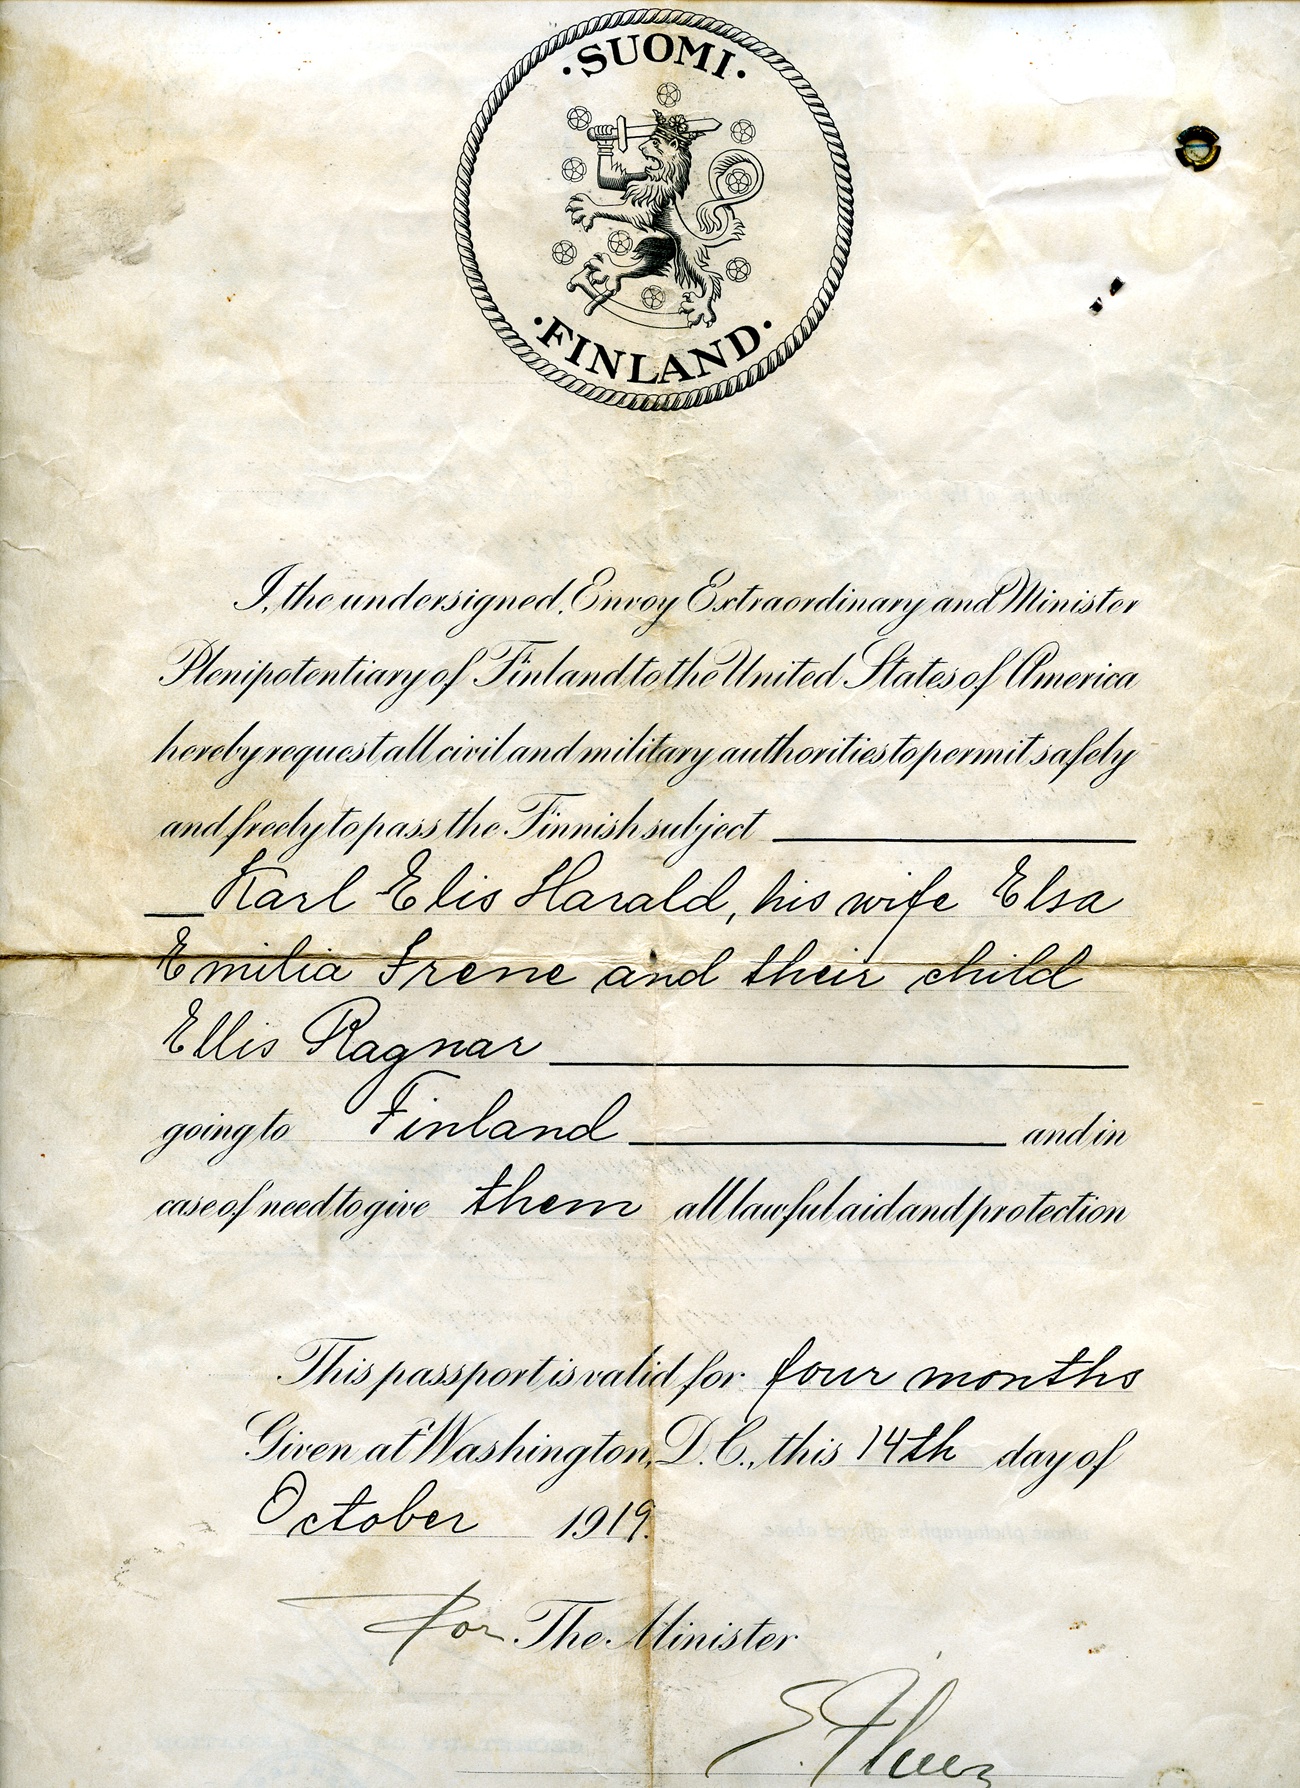 ·SUOMI·
·FINLAND·
I, the undersigned, Envoy Extraordinary and Minister
Plenipotentiary of Finland to the United States of America
hereby request all civil and military authorities to permit safely
and freely to pass the Finnish subject
Karl Elis Harald, his wife Elsa
Emilia Irene and their child
Ellis Ragnar
going to Finland and in
case of need to give them all lawful aid and protection
This passport is valid for four months
Given at Washington, D.C., this 14th day of
October 1919.
For The Minister